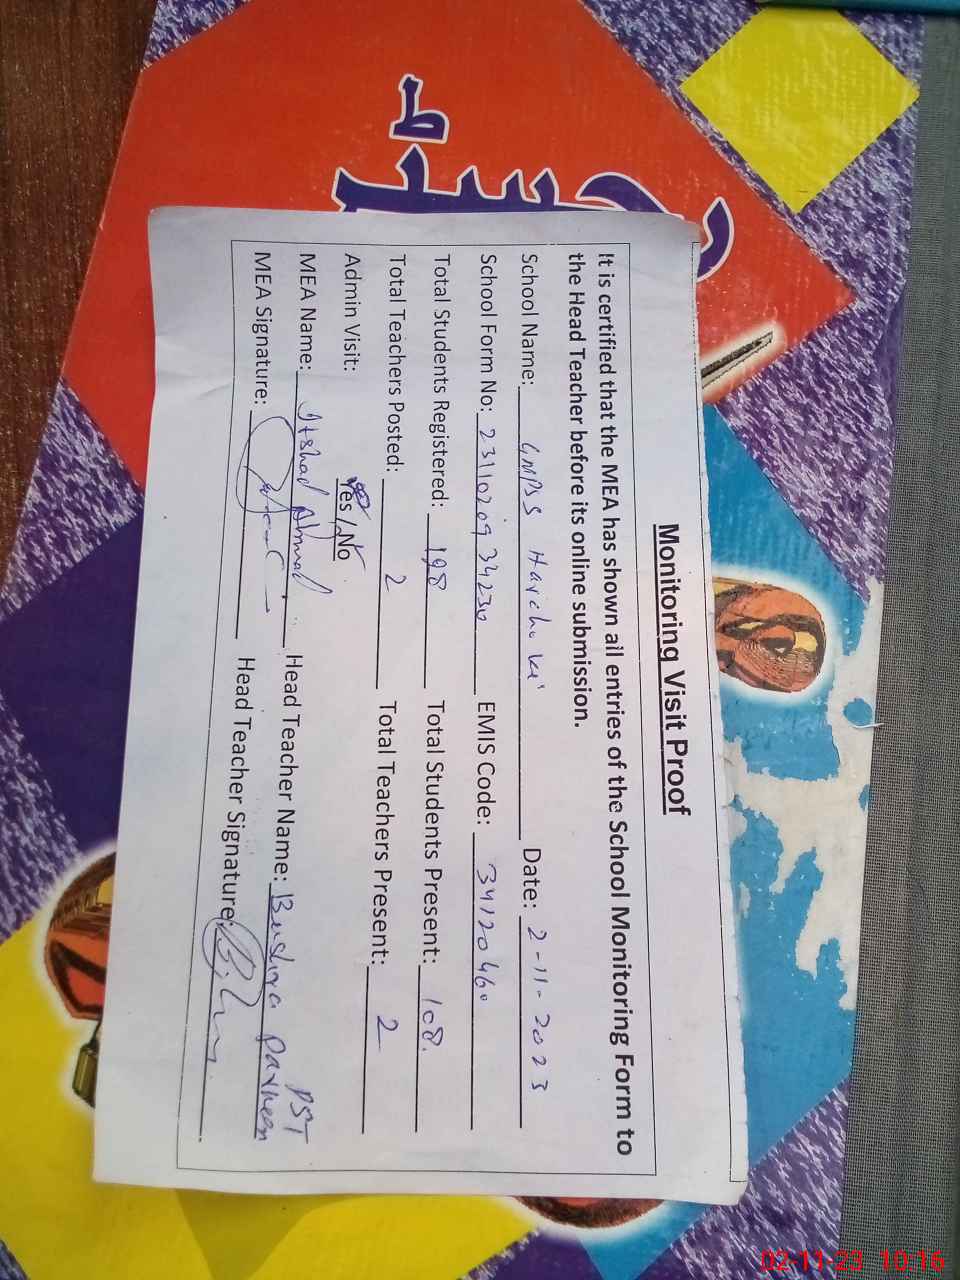 Monitoring Visit Proof
It is certified that the MEA has shown all entries of the School Monitoring Form to
the Head Teacher before its online submission.
School Name: GMPS Harcho ke Date: 2-11-2023
School Form No: 2311020934230 EMIS Code: 34120460
Total Students Registered: 198 Total Students Present: 108.
Total Teachers Posted: 2 Total Teachers Present: 2
Admin Visit: Yes / No
MEA Name: Irshad Ahmad Head Teacher Name: Bushra Parveen PST
MEA Signature: Head Teacher Signature:
02-11-23 10:16